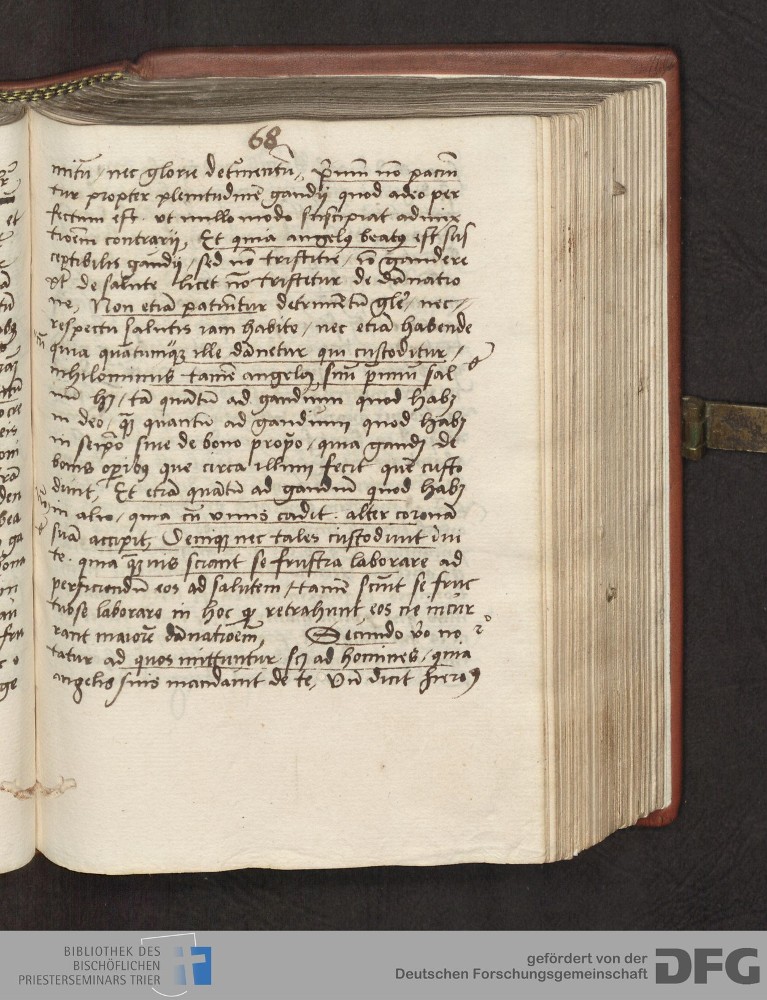 68
mitū / nec glorie detrimentū, Primū nō paciū
tur propter plenitudinē gaudij quod adeo per
fectum est. ut nullo modo suscipiat admix
tioēm contrarij, Et quia angelꝰ beatꝰ est sus
ceptibilis gaudij / sed nō tristitie, gaudere
de salute licet nō tristetur de dānatio
ne, Non etiā patiūtur detrimētū glē, nec
respectu salutis iam habite / nec etiā habende
quia quātumcūqꝫ ille dānetur qui custoditur /
nihilominus tamē angelꝰ suū p̄miū sal
uū hꝫ / tā quātū ad gaudium quod habꝫ
in deo / quā quantū ad gaudium quod habꝫ
in seip̄o siue de bono prop̄o / quia gaudꝫ de
bonis op̄ibꝰ que circa illum fecit quē custo
diuit, Et etiā quātū ad gaudiū quod habꝫ
in alio / quia cū unus cadit. alter coronā
suā accipit, Deniqꝫ nec tales custodiunt īui
te. quia quāuis sciant se frustra laborare ad
perficiendū eos ad salutem / tamē sciūt se fruc
tuose laborare in hoc qꝫ retrahunt eos ne incur
rant maiorē dānatioēm, Secundo v̄o no
tatur ad quos mittuntur scꝫ ad homines / quia
angelis suis mandauit de te, Vñ dicit Hieroꝰ
BIBLIOTHEK DES
BISCHÖFLICHEN
PRIESTERSEMINARS TRIER
gefördert von der
Deutschen Forschungsgemeinschaft
DFG